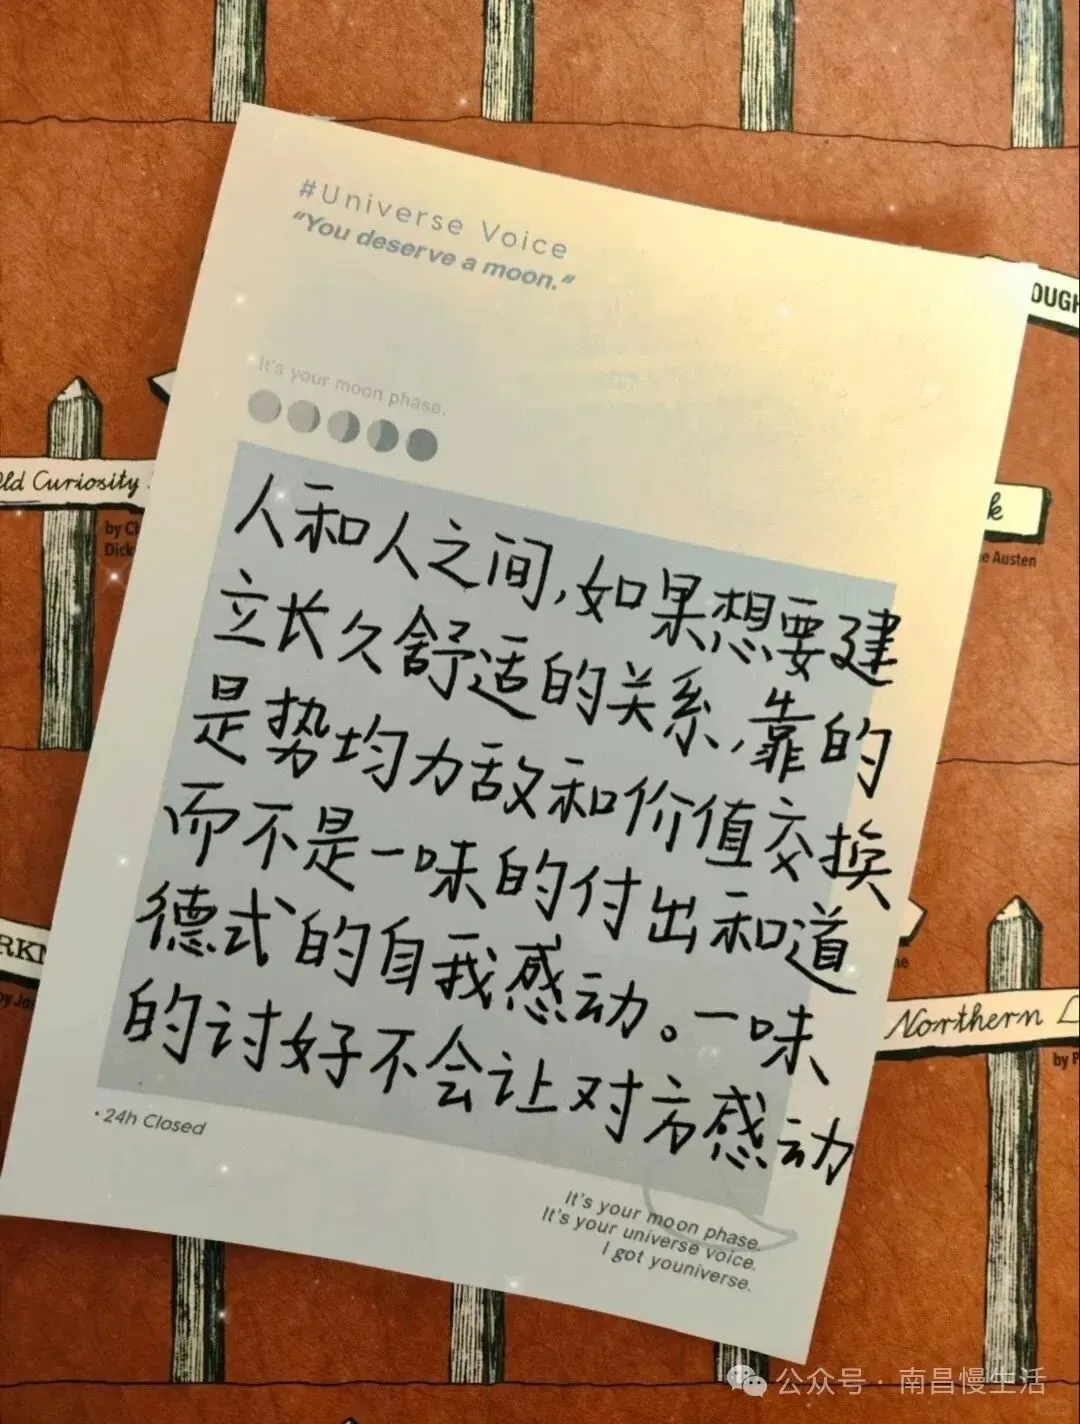 #Universe Voice
"You deserve a moon."
It's your moon phase.
人和人之间,如果想要建
立长久舒适的关系,靠的
是势均力敌和价值交换
而不是一味的付出和道
德式的自我感动。一味
的讨好不会让对方感动
• 24h Closed
It's your moon phase.
It's your universe voice.
I got youniverse.
OUGH
Old Curiosity
by Ch
Dick
k
e Austen
RKN
by Jos
ne
Northern
by P
公众号 · 南昌慢生活